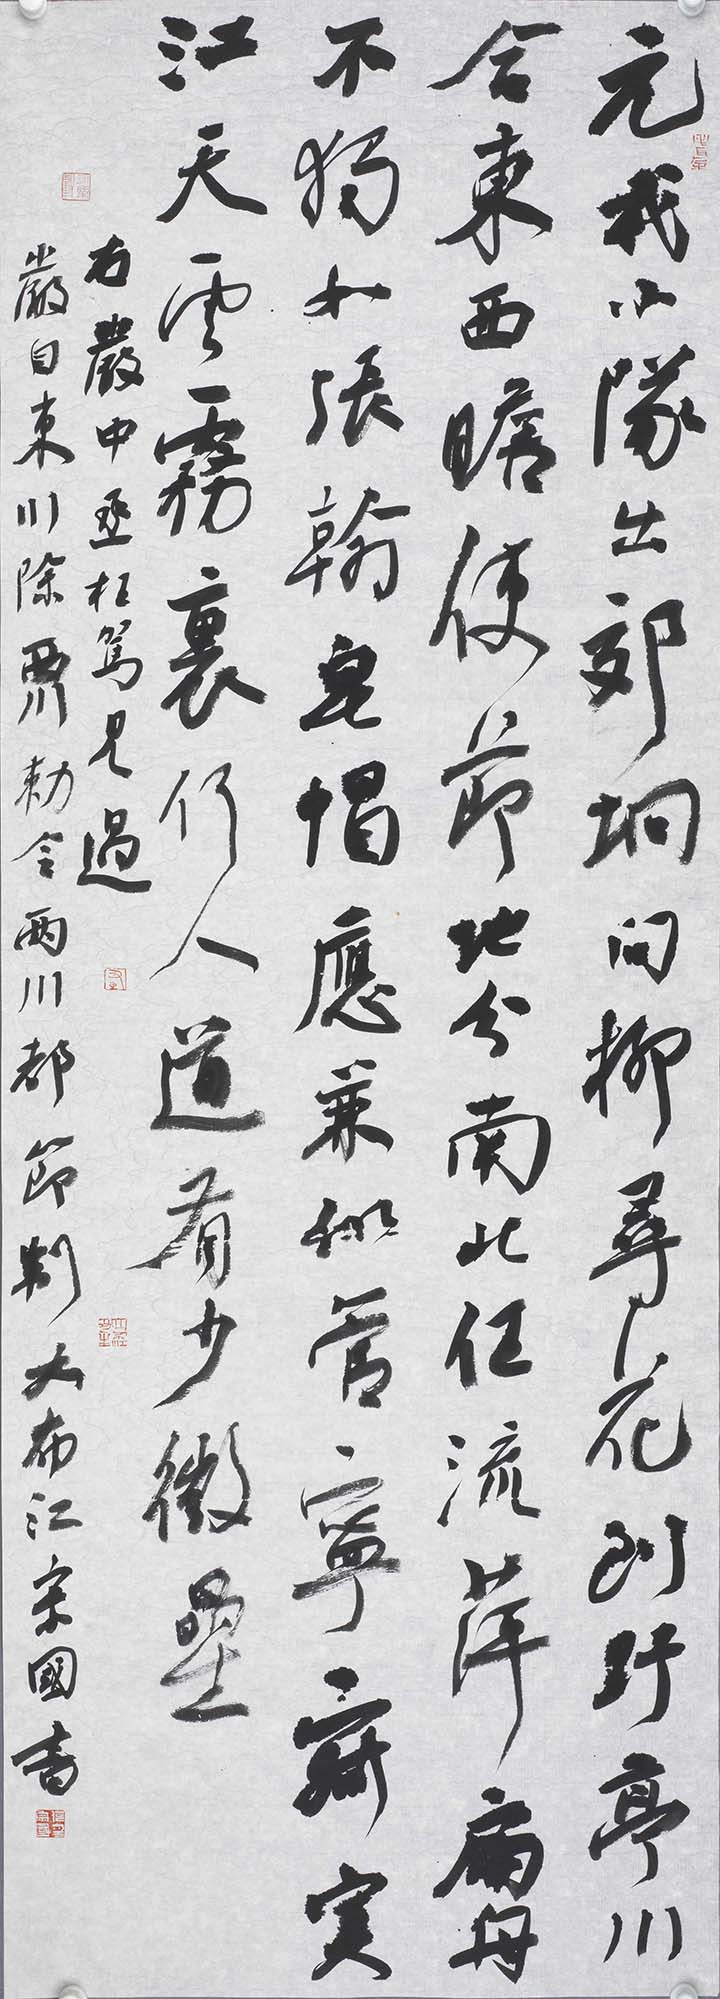 元戎小隊出郊坰问柳尋花到野亭川
合東西瞻使節地分南北任流萍扁舟
不獨如張翰皂帽應兼似管寧寂寞
江天雲霧裏何人道有少微曐
右嚴中丞枉駕見過
嚴自東川除西川勅令兩川都節制 大布江宋國書